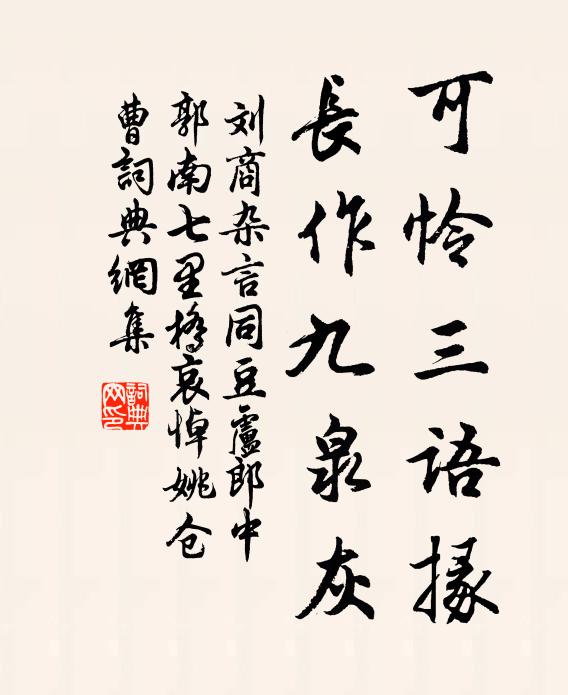 可怜三语掾
長作九泉灰
刘商杂言同豆盧郎中
郭南七里橋哀悼姚仓
曹詞典網集
詞典網印